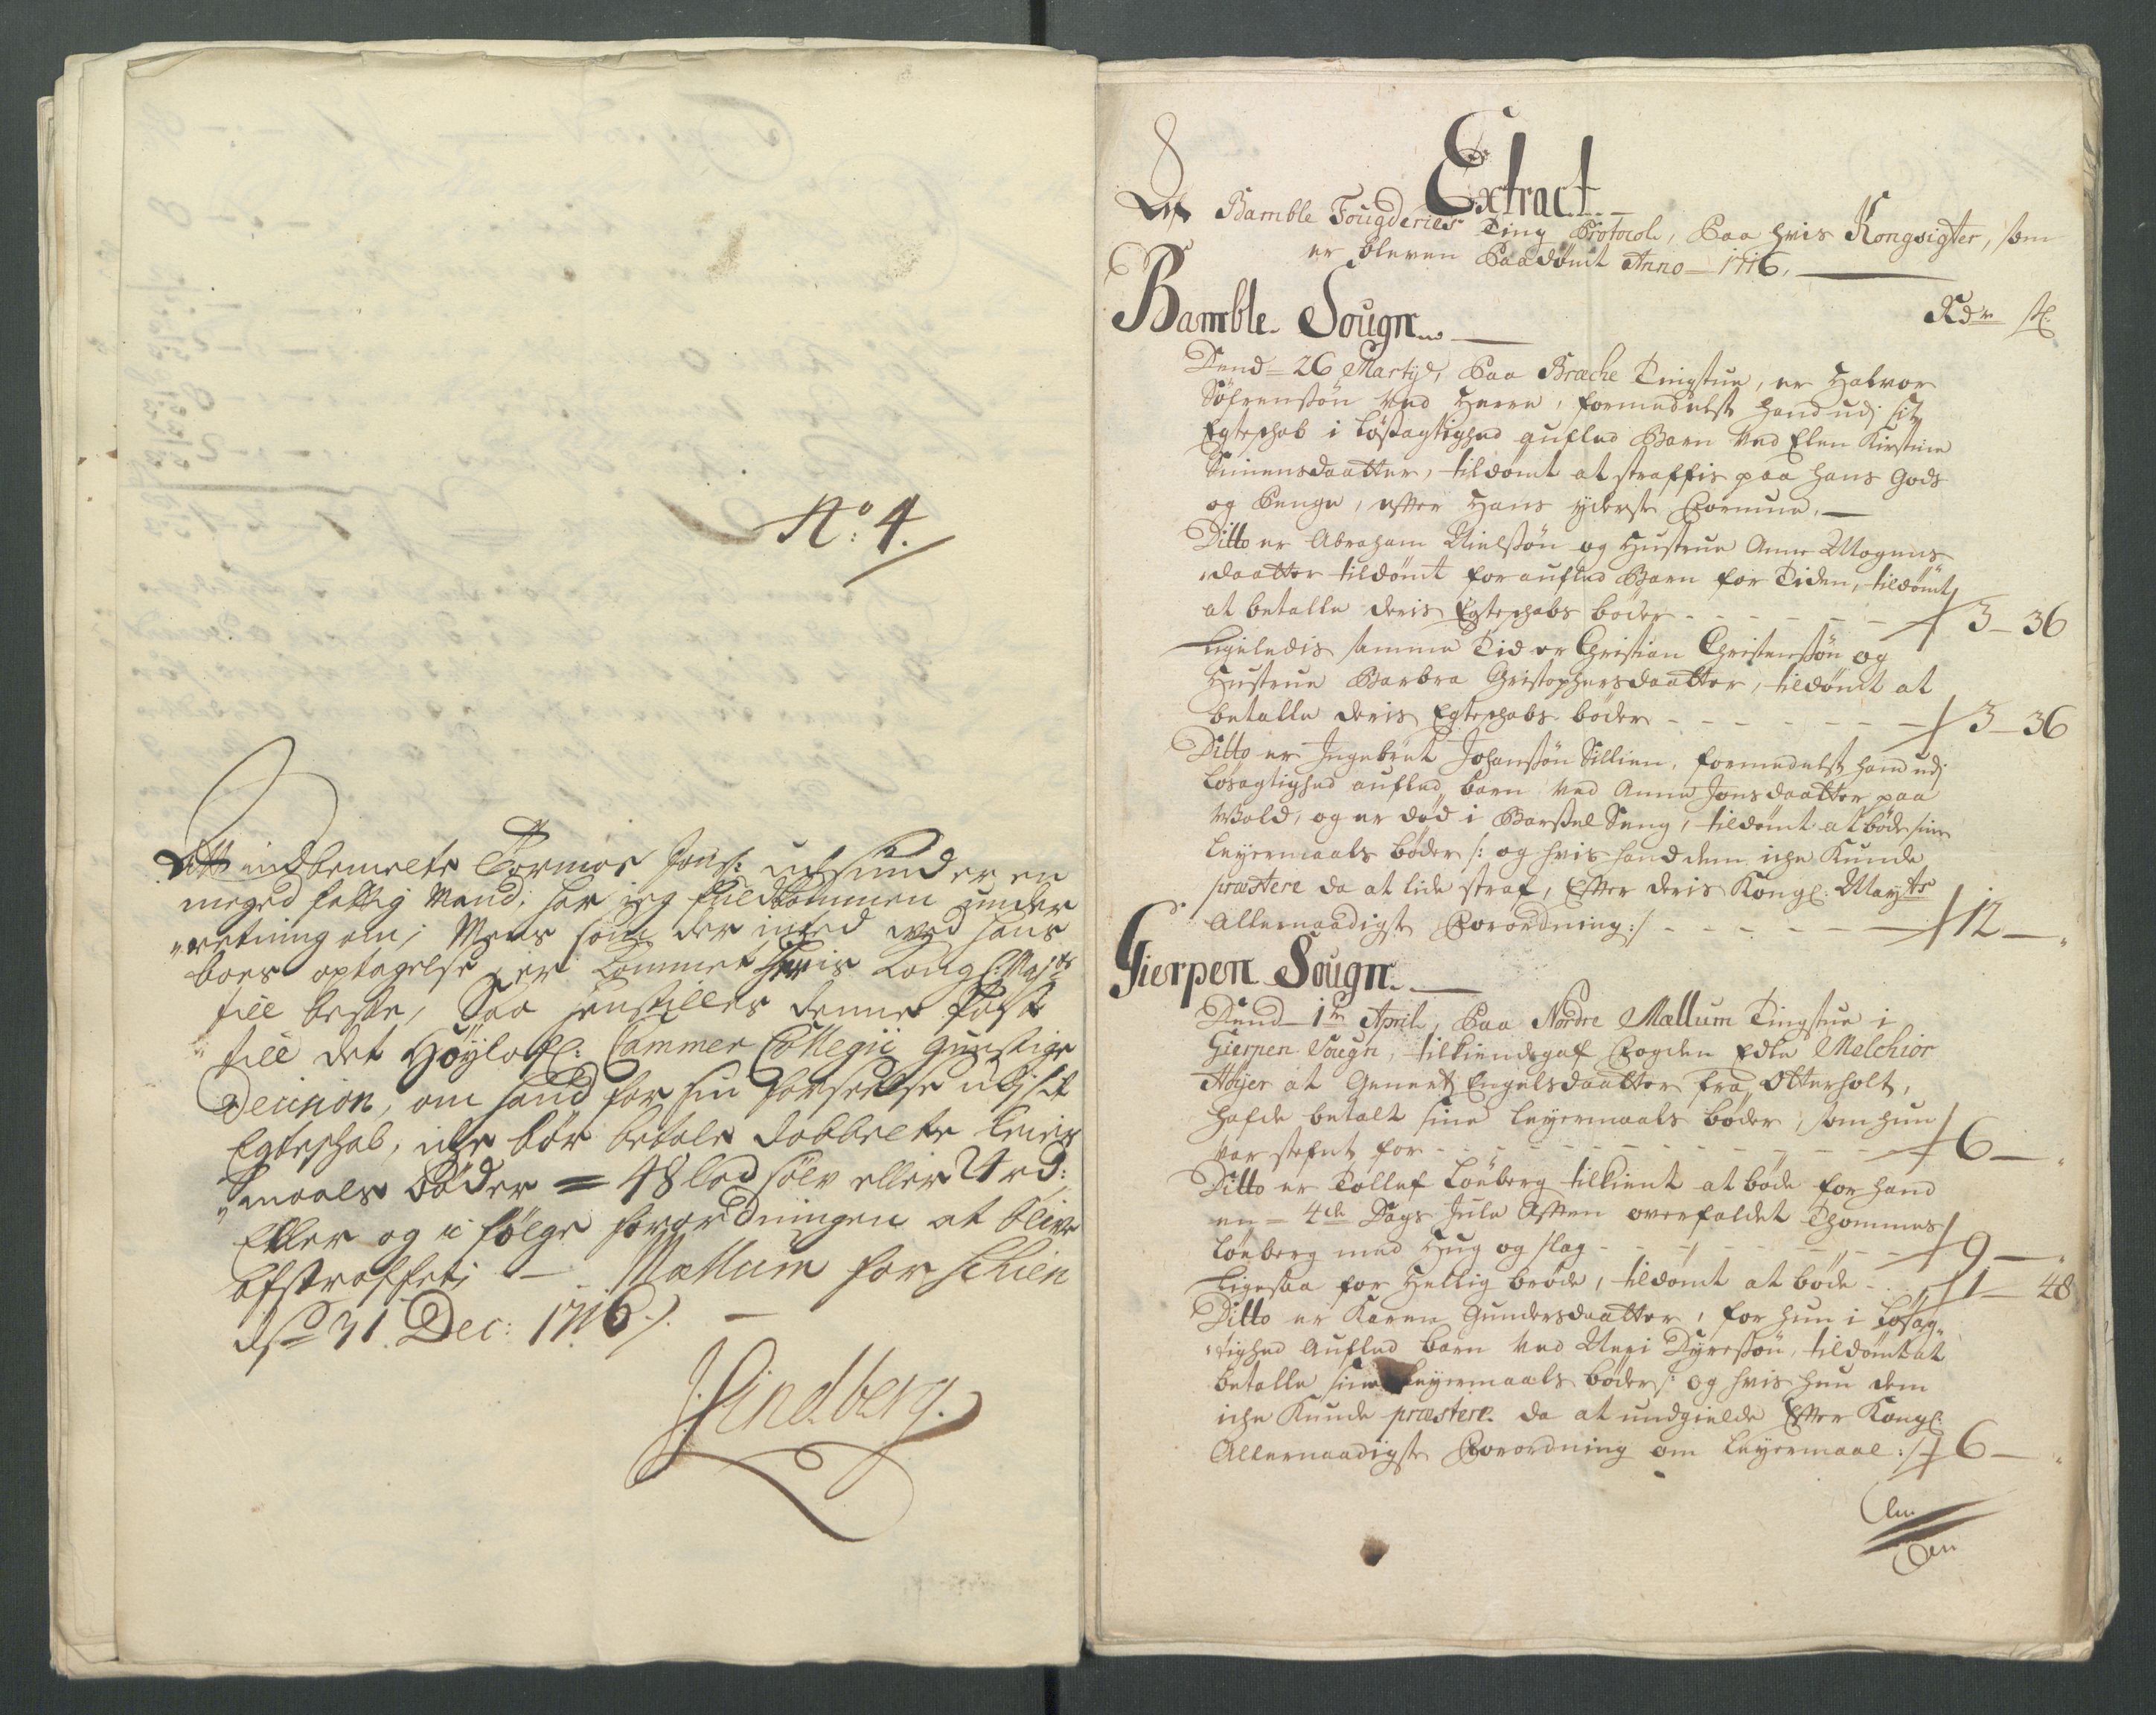 No: 4.
Att indbemelte Tormor Jons: udsund er en
meged fattig Mand, har jeg fuldkommen under
"retning om; Mens som der inted ved hans
boes optagelse, er kommet Hans Kongl: Mayts
till beste, Saa henstilles denne post
till det Höylofl: Cammer Collegii gunstige
Decision, om hand for sin forseelse udj sit
Egteschab, iche bör betale dobbelte leier
"maals böder = 48 lod sölv eller 24 rd:
Eller og i fölge forordningen at blive
afstraffet; — Mællum for Schien
d 31. Dec: 1716 ./. —
J: Lindberg.
Extract
Af Bamble Fougderies Ting Protocol, Paa hvis Kongsigter, som
er bleven Paadömt Anno 1716.
Bamble Sougn
Rdr s
Dend 26 Martij, Paa Bræche Tingstue, er Halvor
Söfrensön ved Herre, formedelst hand udj sit
Egteschab i Lösagtighed auflet Barn med Elen Kirstine
Simensdaatter, tildömt at straffis paa hans Gods
og Penge, efter Hans yderste Formue,
Ditto er Abraham Nielsön og Hustrue Anne Mogens
"daatter tildömt for auflet Barn for Tiden, tildömt
at betalle deris Egteschabs böder - - - 3 - 36
Ligeledis samme Tid er Christian Christensön og
Hustrue Barbra Christophersdaatter, tildömt at
betalle deris Egteschabs böder - - - 3 - 36
Ditto er Ingebret Johansön Sillien, formedelst hand udj
Lösagtighed auflet barn med Anne Jonsdaatter paa
Wold, og er död i Barsel Seng, tildömt at böde sine
Leyermaals böder /: og hvis hand dem iche Kunde
præstere da at lide straf, Efter deris Kongl: Mayts
Allernaadigste Forordning :/ - - - 12 — "
Gierpen Sougn
Dend 1te April, Paa Nordre Mællum Tingstue i
Gierpen Sougn, tilkiendegaf Fogden Edle Melchior
Höyer at Genert Engelsdaatter fra Otterholt,
hafde betalt sine Leyermaals böder, som hun
var stefnt for - - - 6 — "
Ditto er Tollef Löberg tilkient at böde for hand
en 4de Dags Jule Aften overfaldet Thommes
Löeberg med Hug og slag - - - 9 — "
Ligesaa for Hellig bröde, tildömt at böde - 1 - 48
Ditto er Karen Gundersdaatter, for hun i Lösag-
"tighed Auflet barn med Neri Dyresön, tildömt at
betalle sine Leyermaals böder /: og hvis hun dem
iche Kunde præstere da at undgielde Efter Kongl:
Allernaadigste Forordning om Leyermaal :/ 6 — "